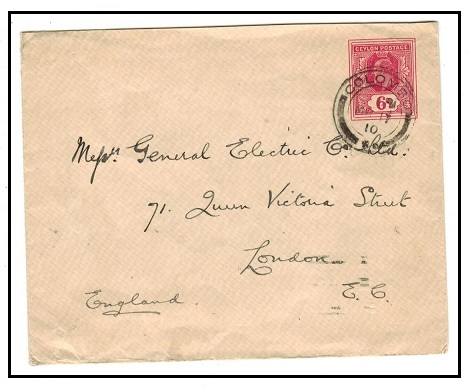 CEYLON POSTAGE
6
COLOMBO
10
Messrs General Electric Co. Ltd.
71. Queen Victoria Street
London
E.C.
England.